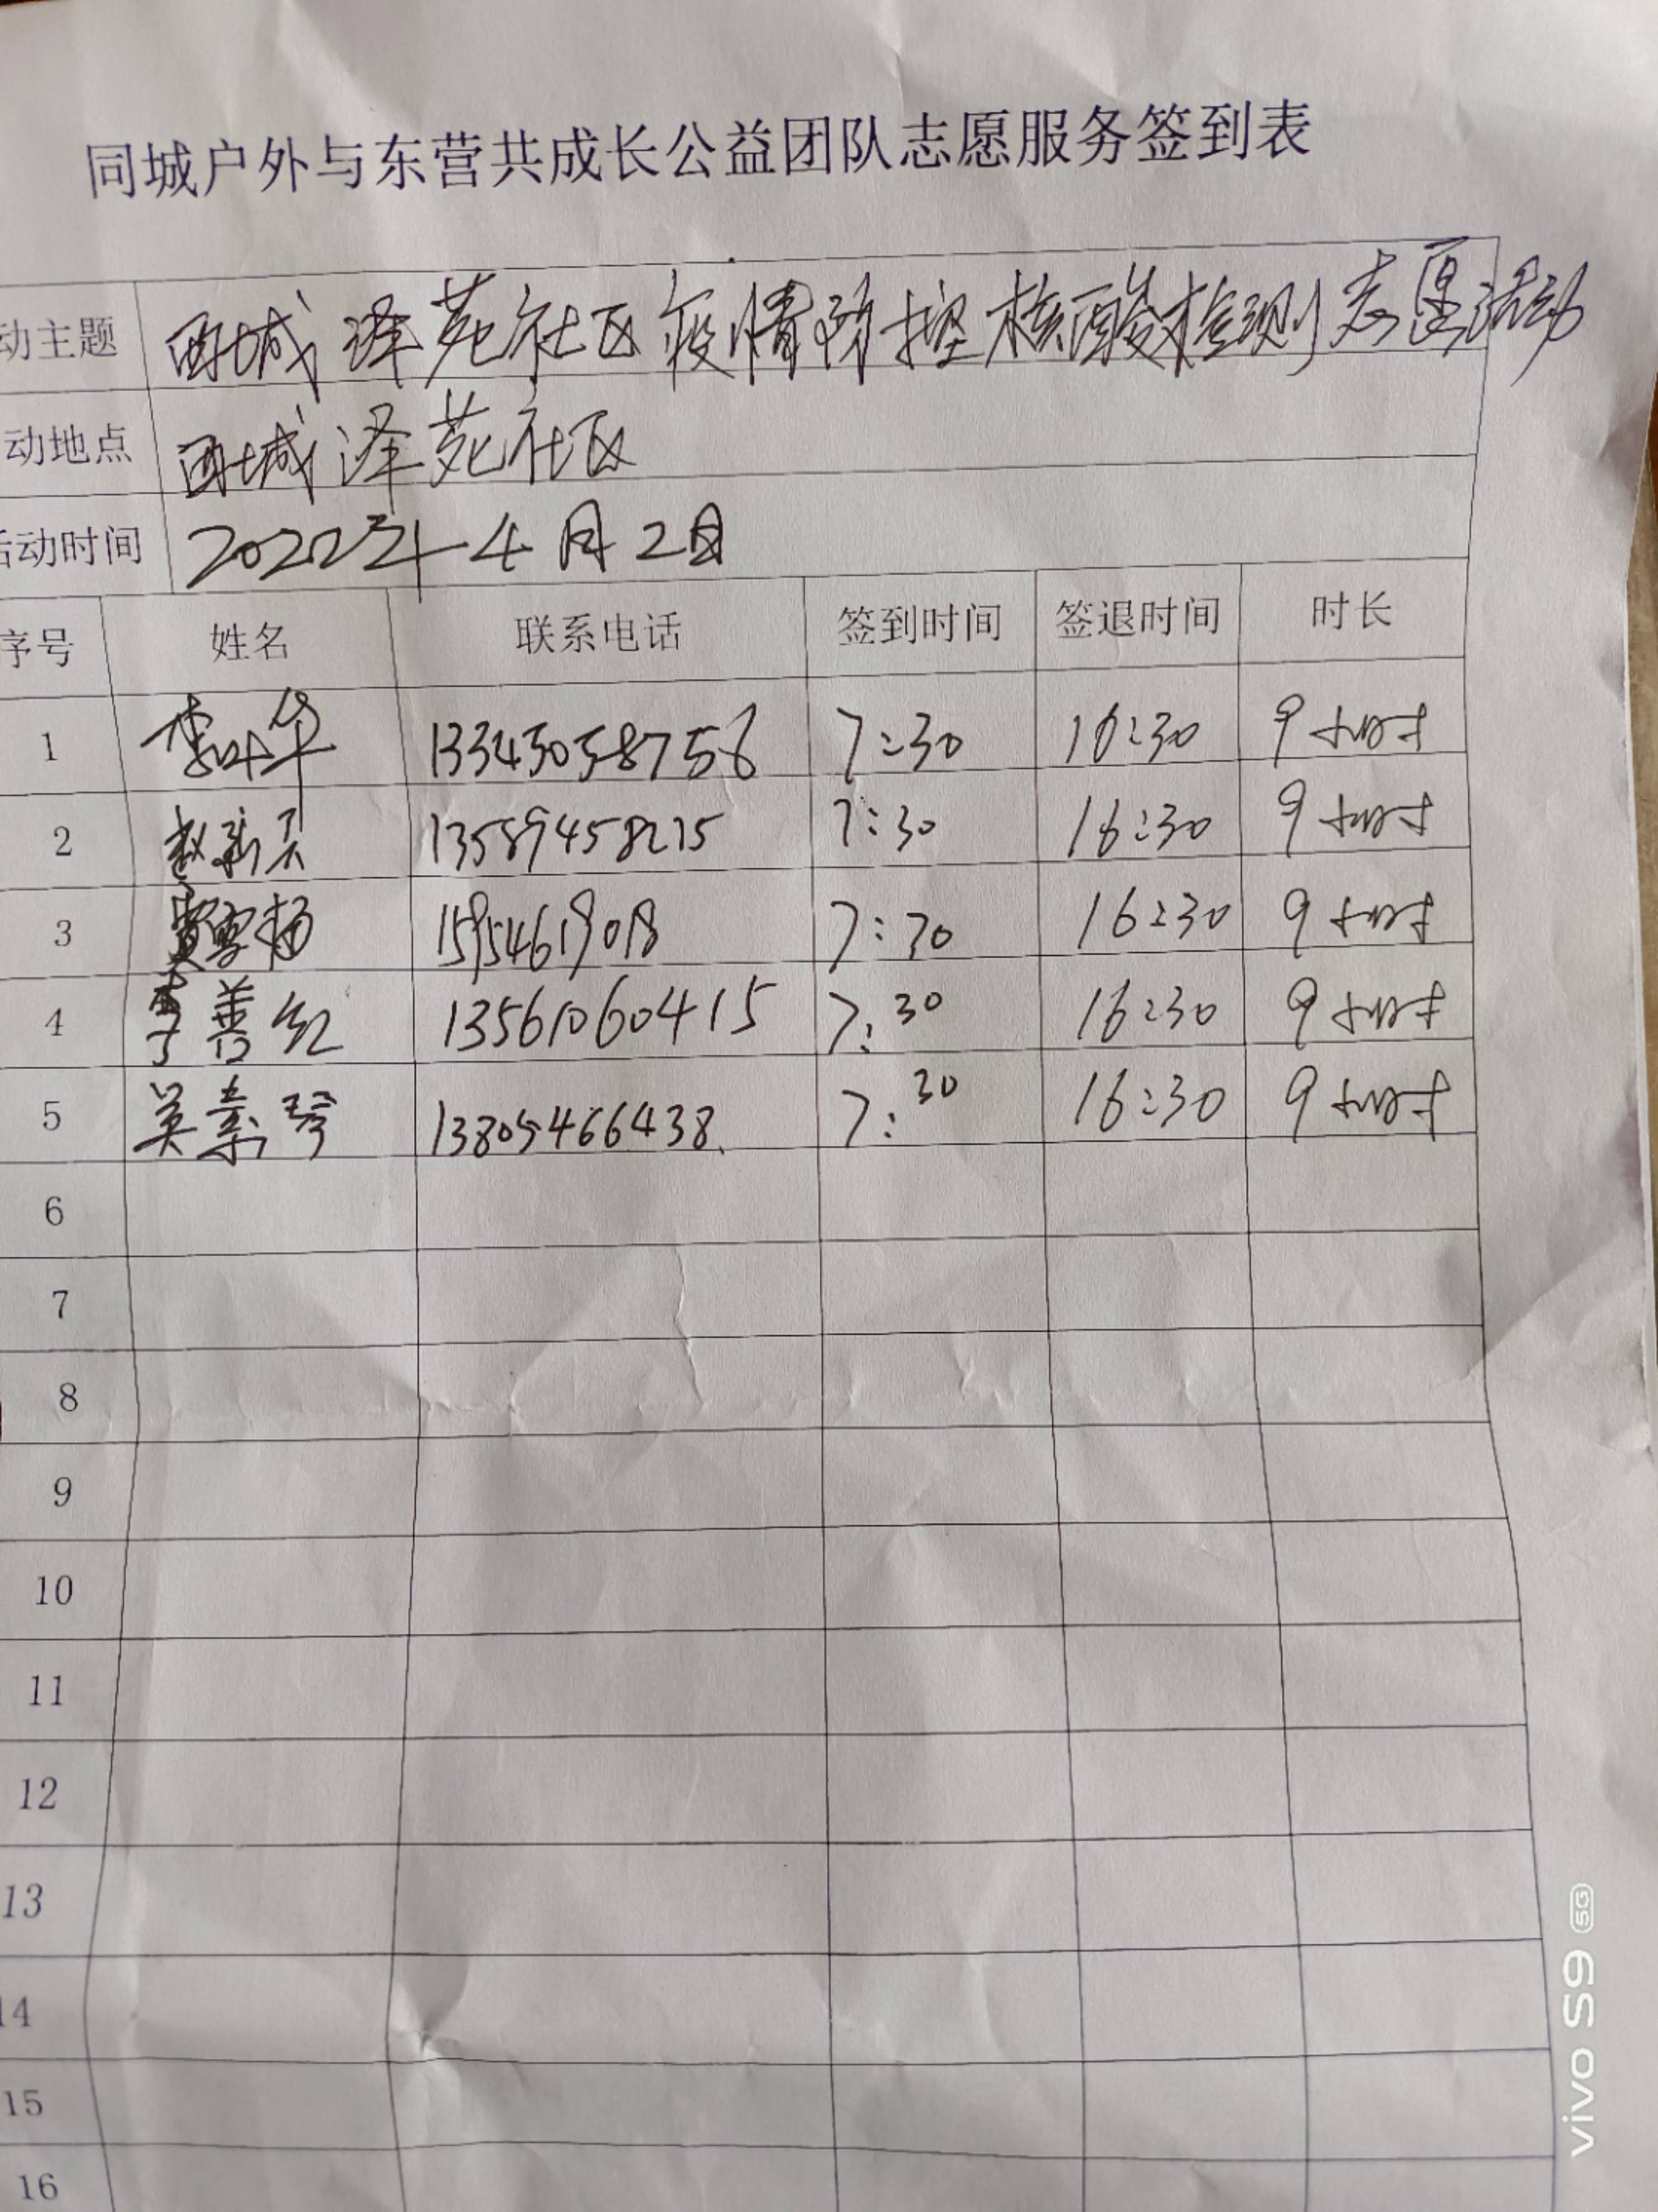 同城户外与东营共成长公益团队志愿服务签到表
动主题 西城泽苑社区疫情防控核酸检测志愿活动
动地点 西城泽苑社区
活动时间 2022年4月2日
序号 姓名 联系电话 签到时间 签退时间 时长
1 李叶华 13345058756 7:30 16:30 9小时
2 赵新英 13589458215 7:30 16:30 9小时
3 黄雪梅 15954619018 7:30 16:30 9小时
4 李善红 13561060415 7:30 16:30 9小时
5 吴素琴 13805466438 7:30 16:30 9小时
6
7
8
9
10
11
12
13
14
15
16
vivo S9 5G